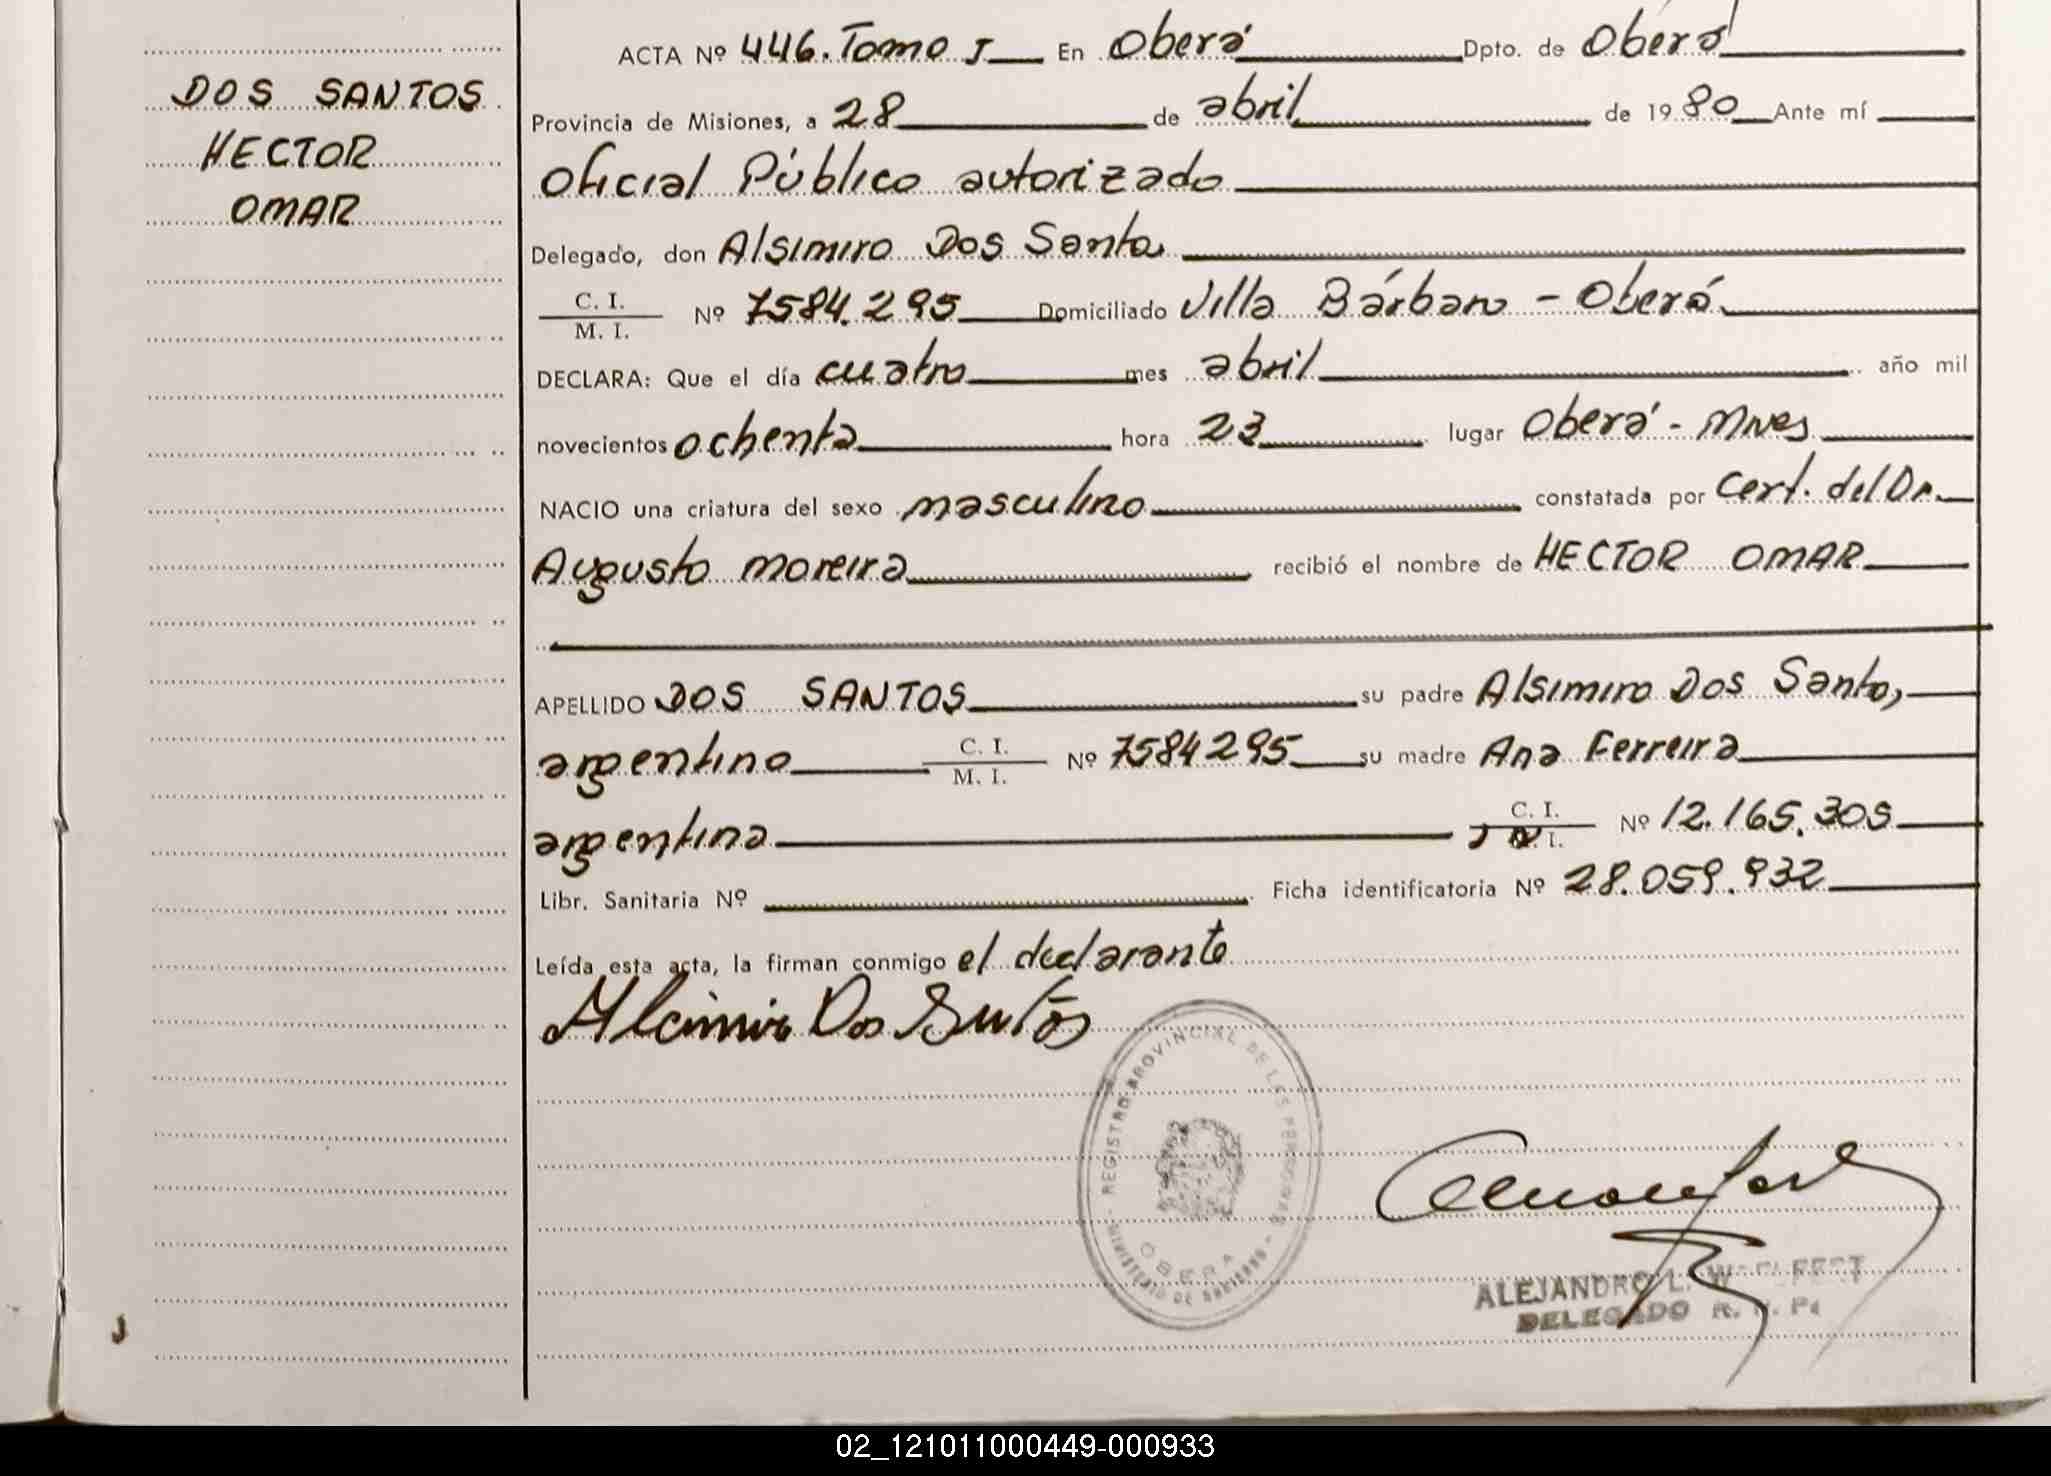 DOS SANTOS
HECTOR
OMAR
ACTA Nº 446. Tomo I En Oberá Dpto. de Oberá
Provincia de Misiones, a 28 de abril de 1980 Ante mí
Oficial Público autorizado
Delegado, don Alsimiro Dos Santos
C. I.
M. I. Nº 7584.295 Domiciliado Villa Bárbaro - Oberá
DECLARA: Que el día cuatro mes abril año mil
novecientos ochenta hora 23 lugar Oberá - Mnes
NACIO una criatura del sexo masculino constatada por Cert. del Dr.
Augusto Moreira recibió el nombre de HECTOR OMAR
APELLIDO DOS SANTOS su padre Alsimiro Dos Santos,
argentino C. I. M. I. Nº 7584295 su madre Ana Ferreira
argentina C. I. Nº 12.165.305
Libr. Sanitaria Nº Ficha identificatoria Nº 28.059.932
Leída esta acta, la firman conmigo el declarante
Alcimiro Dos Santos
REGISTRO PROVINCIAL DE LAS PERSONAS
OBERA
ALEJANDRO L.
DELEGADO R. P.
02_121011000449-000933